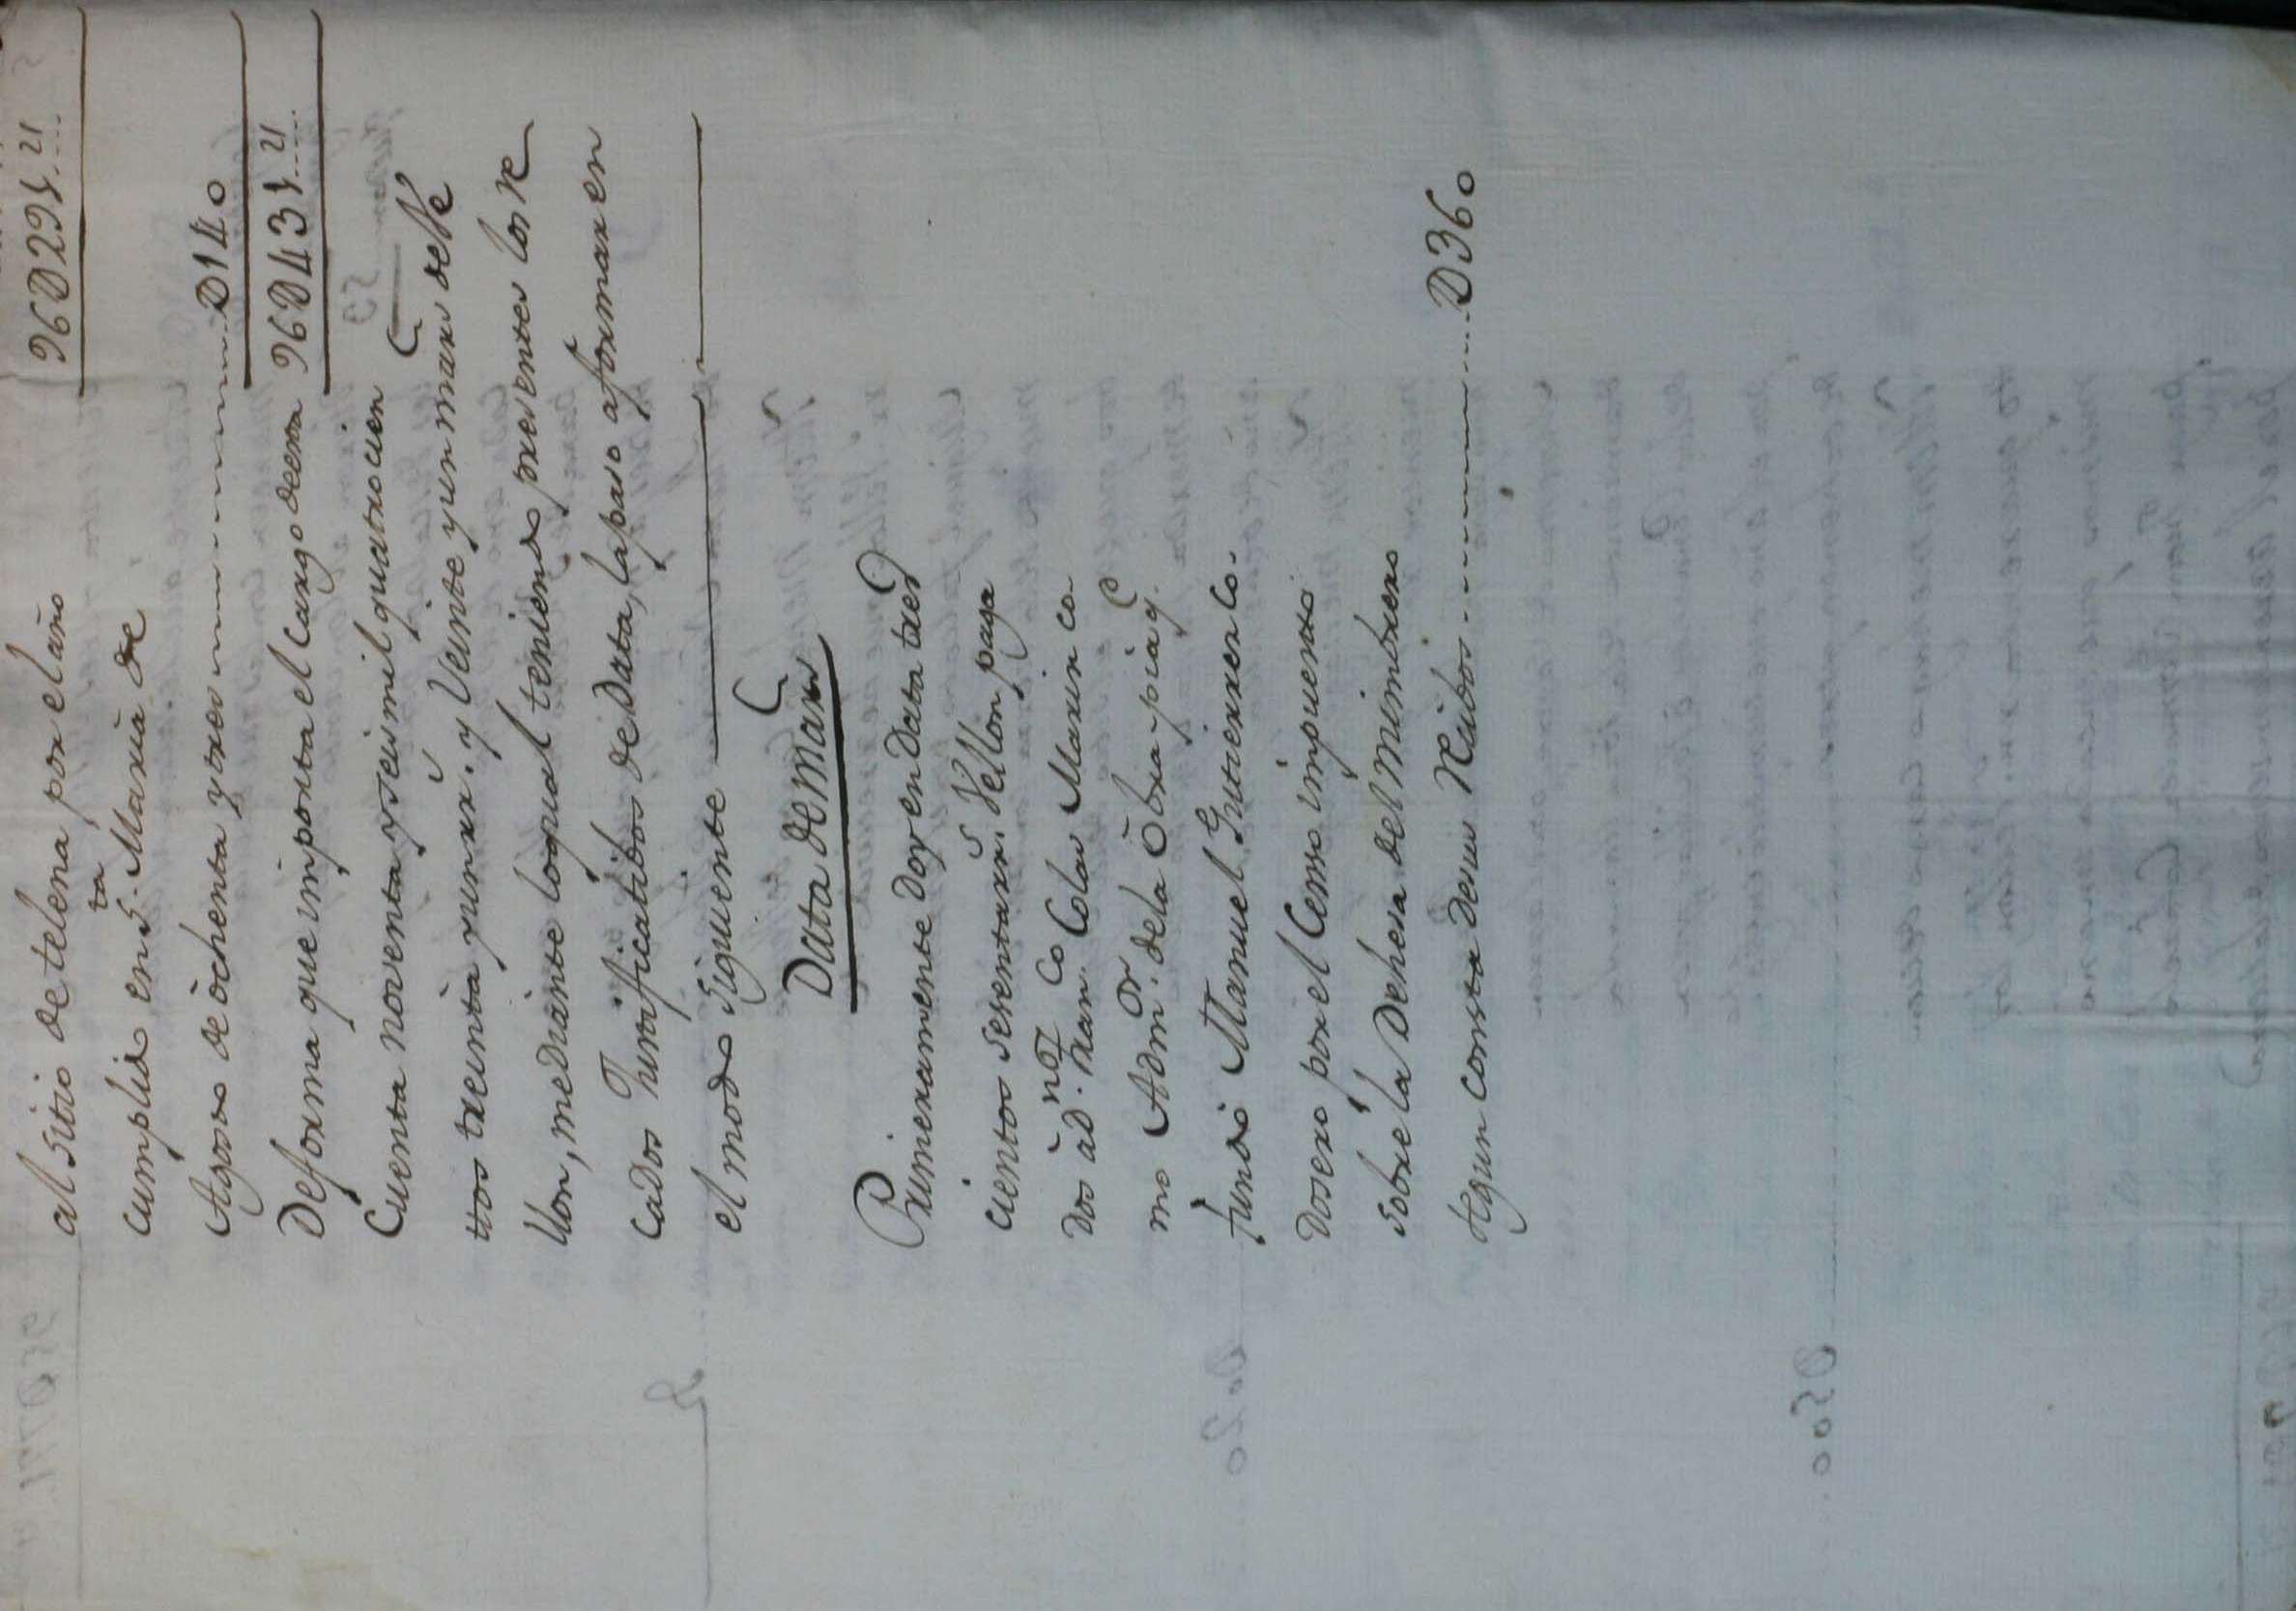 96D291..21
al sitio de telena por el año
cumplido en S.ta Maria de
Agosto de ochenta y tres D140
De forma que importa el Cargo de esta 96D431..21
Cuenta noventa y seis mil quatrocien
ttos treinta y un r.s y Veinte y un mãrs de Ve
llon, mediante lo qual teniendo presentes los re
cados Justificatibos de Data, la paso a formar en
el modo siguiente
Data de mãrs
Primeramente Doy en Data tres
cientos sesenta r.s Vellon paga
dos àd.n Fran.co Colas Marin co
mo Adm.or de la Obra-pia q.e
fundó Manuel Gutierrez Co-
rdosero por el Censo impuesto
sobre la Dehesa del mimbrero
segun consta de su Reãbo D360